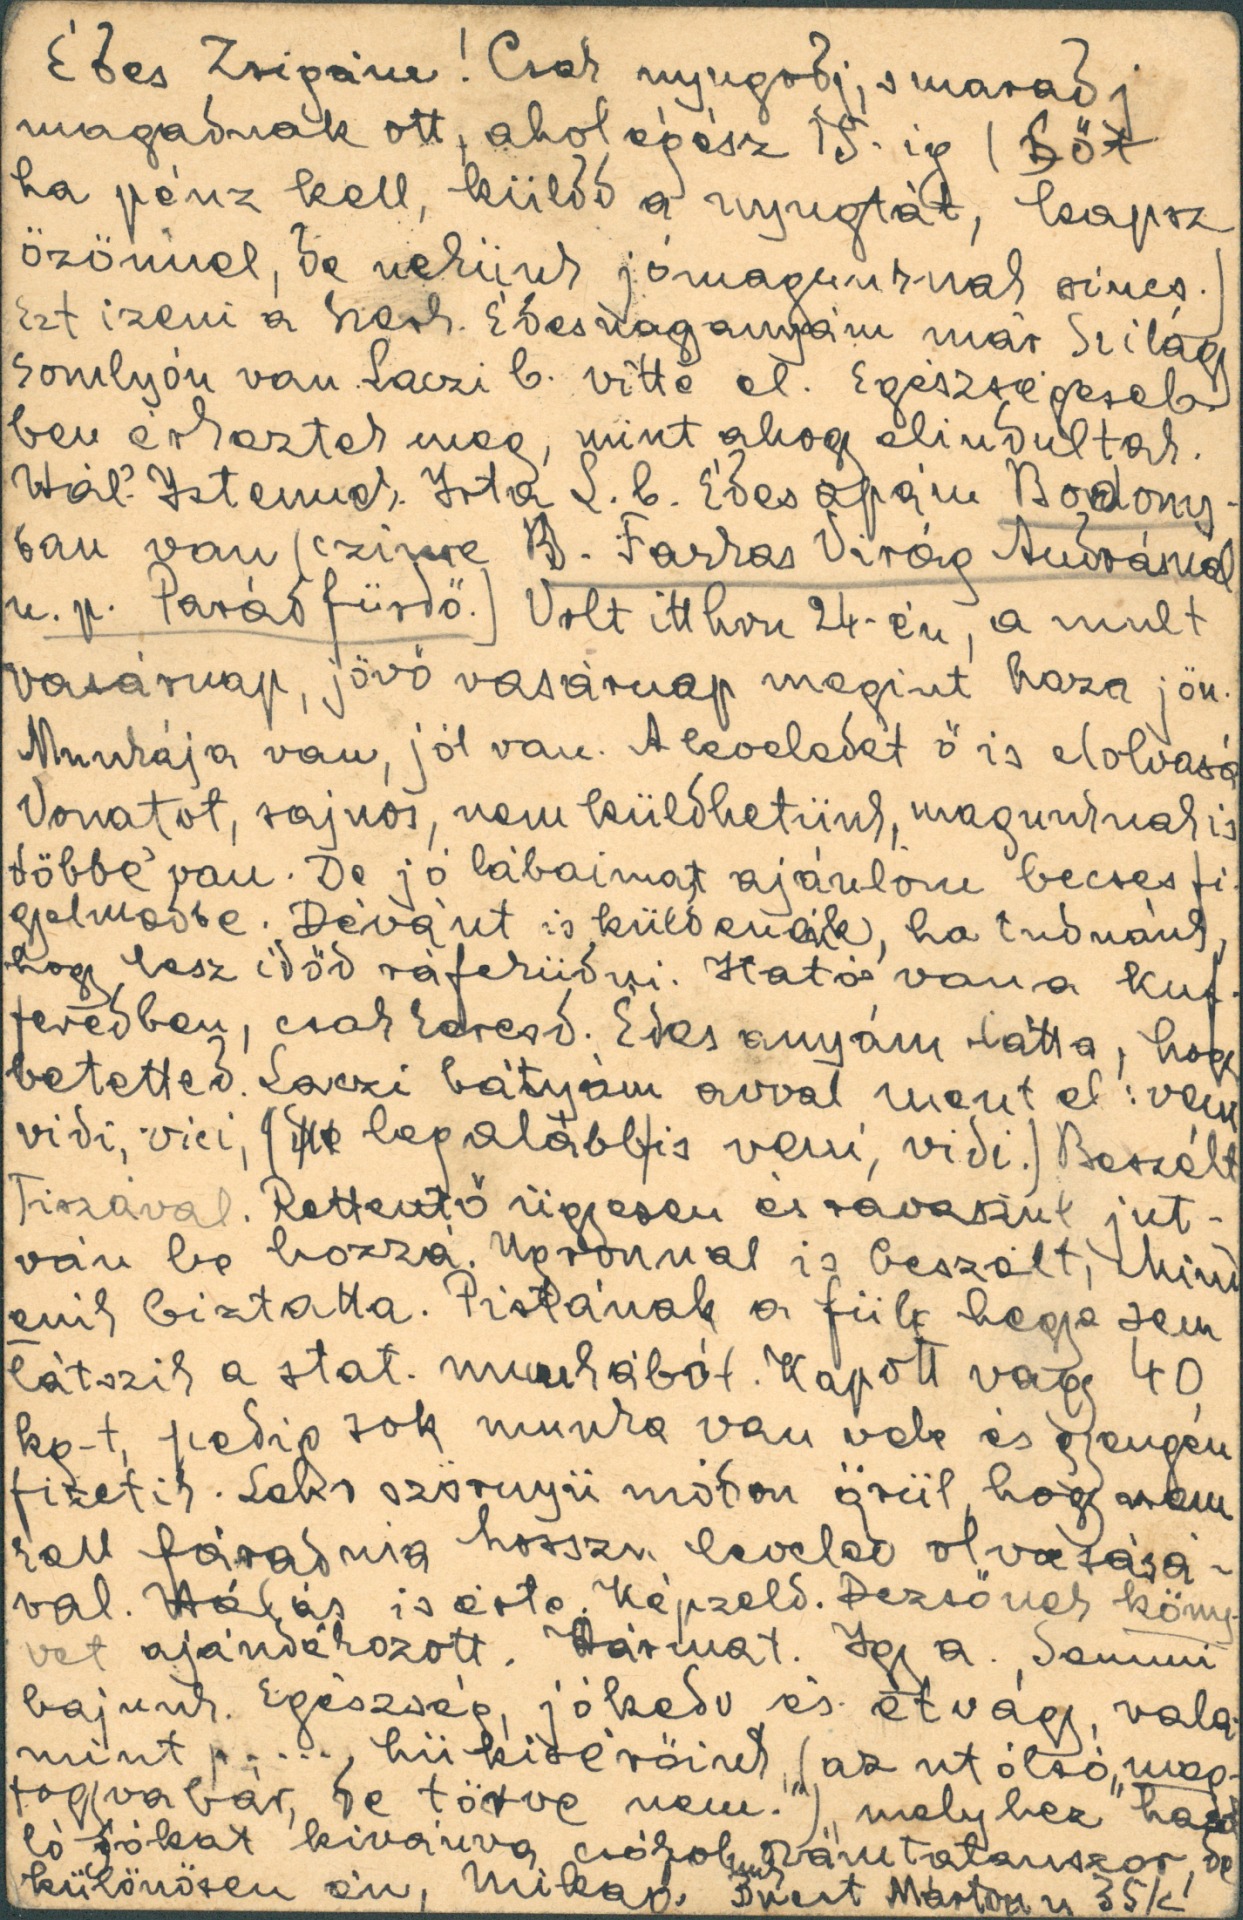 Édes Zsigáne! Csak nyugodj, s maradj
magadnak ott, ahol egész 15-ig (Sőt
ha pénz kell, küldd a nyugtát, kapsz
özönnel, de nekünk jómagunknak sincs.)
Ezt izeni a Édesnaganyám már Szilágy
somlyón van. Laczi b. vitte el. Egészségeseb-
ben érkeztek meg, mint ahog elindultak.
Hál' Istennek. Irta L. b. Édesapám Bodony-
ban van (czime B. Farkas Virág Andrásnál
u. p. Parádfürdő.) Volt itthon 24-én, a mult
vasárnap, jövő vasárnap megint haza jön.
Munkája van, jól van. A leveledet ő is elolvasá
Vonatot, sajnos, nem küldhetünk, magunknak is
többé van. De jó lábaimat ajánlom becses fi-
gyelmedbe. Dévánt is küldenénk, ha tudnánk,
hog lesz időd ráfeküdni. Ható van a kuf-
feredben, csak keresd. Édes anyám látta, hog
betetted. Laczi bátyám avval ment el: veni
vidi, vici, (de legalább is veni, vidi.) Beszélt
Tiszával. Rettentő ügyesen és ravaszul jut-
ván be hozzá. Neronnal is beszélt, Mind
enik biztatta. Pistának a füle hegye sem
látszik a stat. munkából. Kapott vagy 40
kg-t, pedig sok munka van vele és gyengén
fizetik. Leks szörnyü módon örül, hog nem
kell fáradnia hosszu leveled olvasásá-
val. Hálás is érte. Képzeld. Dezsőnek köny-
vet ajándékozott. Hármat. Igy a. Semmi
bajunk. Egészség, jókedv és étvágy, vala-
mint p....., hü kisérőink (az utólsó „meg-
fogyva bár, de törve nem.") melyhez
jókat kivánva csókolunk számtalanszor, de
különösen én, Mikab. Szent Márton u 35/c!